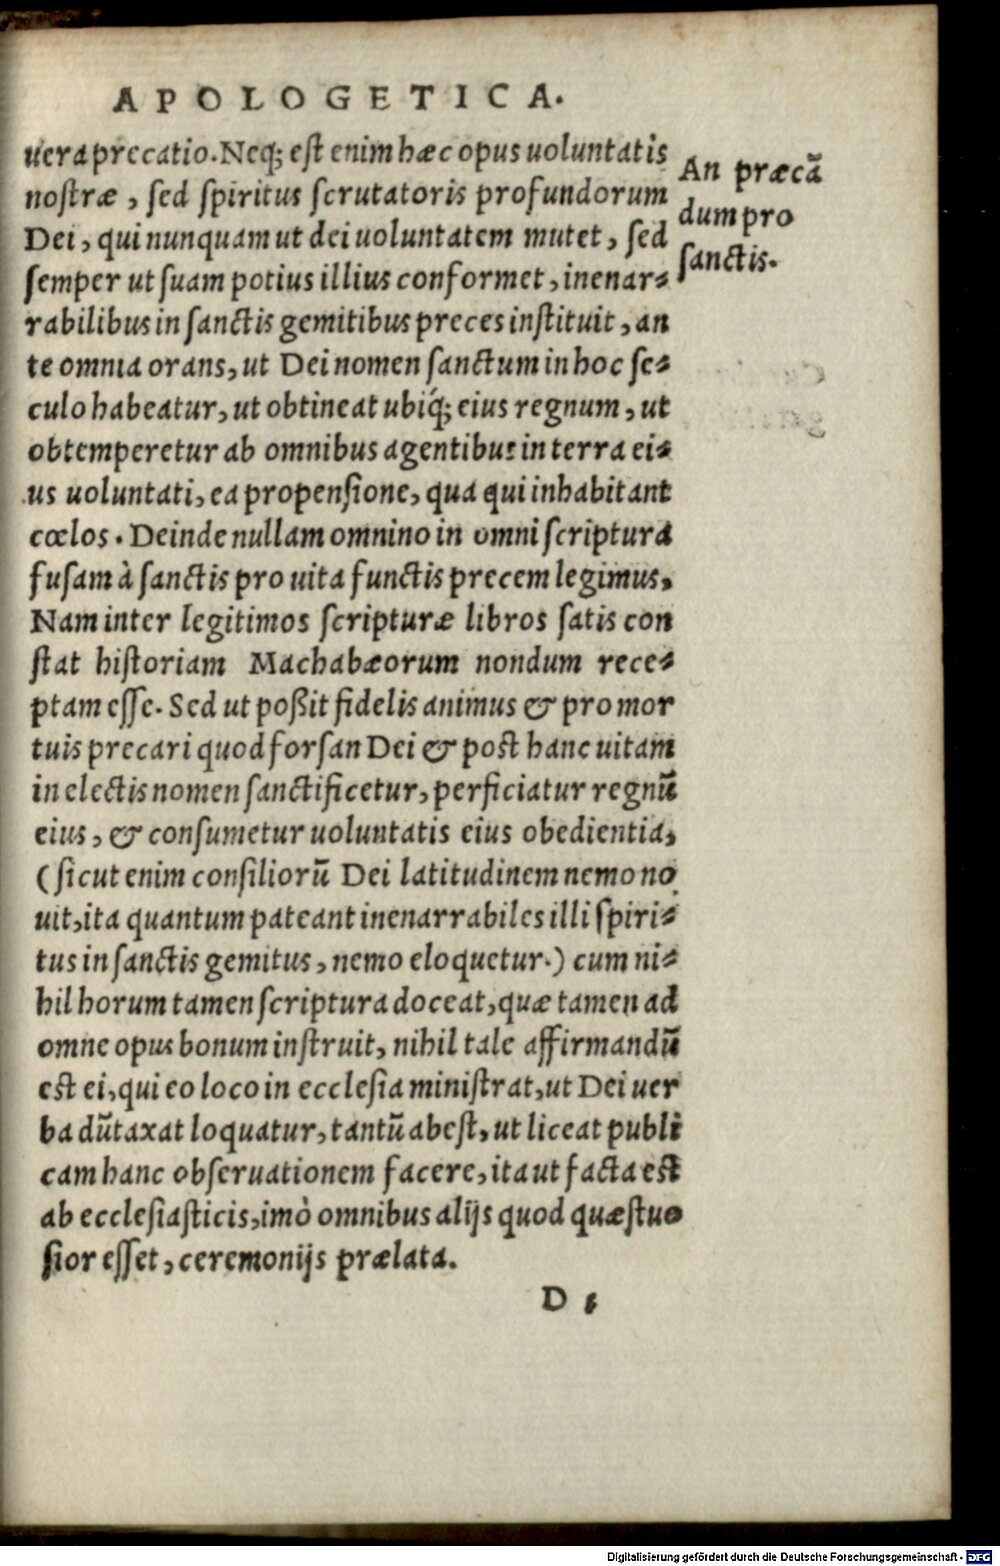 APOLOGETICA.
uera precatio. Neq; est enim hæc opus uoluntatis
nostræ, sed spiritus scrutatoris profundorum
Dei, qui nunquam ut dei uoluntatem mutet, sed
semper ut suam potius illius conformet, inenar-
rabilibus in sanctis gemitibus preces instituit, an
te omnia orans, ut Dei nomen sanctum in hoc se-
culo habeatur, ut obtineat ubiq́; eius regnum, ut
obtemperetur ab omnibus agentibus in terra ei-
us uoluntati, ea propensione, qua qui inhabitant
cœlos. Deinde nullam omnino in omni scriptura
fusam à sanctis pro uita functis precem legimus,
Nam inter legitimos scripturæ libros satis con
stat historiam Machabæorum nondum rece-
ptam esse. Sed ut poßit fidelis animus & pro mor
tuis precari quod forsan Dei & post hanc uitam
in electis nomen sanctificetur, perficiatur regnũ
eius, & consumetur uoluntatis eius obedientia,
(sicut enim consiliorũ Dei latitudinem nemo no
uit, ita quantum pateant inenarrabiles illi spiri-
tus in sanctis gemitus, nemo eloquetur.) cum ni-
hil horum tamen scriptura doceat, quæ tamen ad
omne opus bonum instruit, nihil tale affirmandũ
est ei, qui eo loco in ecclesia ministrat, ut Dei uer
ba dũtaxat loquatur, tantũ abest, ut liceat publi
cam hanc obseruationem facere, ita ut facta est
ab ecclesiasticis, imò omnibus alijs quod quæstuo
sior esset, ceremonijs prælata.
D
An præcã
dum pro
sanctis.
Digitalisierung gefördert durch die Deutsche Forschungsgemeinschaft - DFG